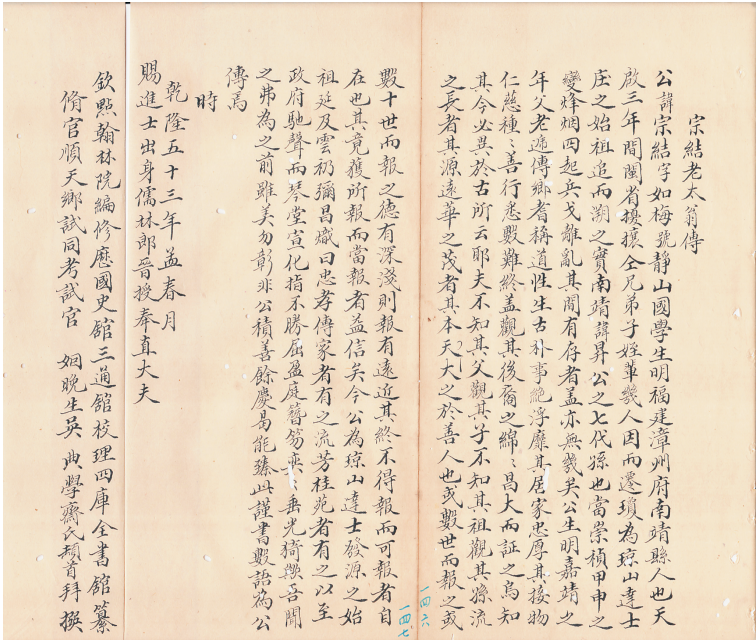 宗結老太翁傳
公諱宗結字如梅號靜山國學生明福建漳州府南靖縣人也天
啟三年間閩省擾攘仝兄弟子姪輩幾人因而遷瓊為瓊山達士
庄之始祖追而溯之實南靖諱昇公之七代孫也當崇禎甲申之
變烽烟四起兵戈離亂其間有存者盖亦無幾矣公生明嘉靖之
年父老遞傳鄉耆稱道性生古朴事絕浮靡其居家忠厚其接物
仁慈種〻善行悉數難終盖觀其後裔之綿〻昌大而証之烏知
其今必異於古所云耶夫不知其父觀其子不知其祖觀其孫流
之長者其源遠華之茂者其本大天之於善人也或數世而報之或
數十世而報之德有深淺則報有遠近其終不得報而可報者自
在也其竟獲所報而當報者益信矣今公為瓊山達士發源之始
祖延及雲礽彌昌熾曰忠孝傳家者有之流芳桂苑者有之以至
政府馳聲而琴堂宣化指不勝屈盈庭簪笏奕〻垂光猗歟吾聞
之弗為之前雖美勿彰非公積善餘慶曷能臻此謹書數語為公
傳焉
時
乾隆五十三年孟春月
賜進士出身儒林郎晉授奉直大夫
欽點翰林院編修歷國史舘三通舘校理四庫全書舘纂
脩官順天鄉試同考試官 姻晚生吳典學齋氏頓首拜撰
一四六
一四七